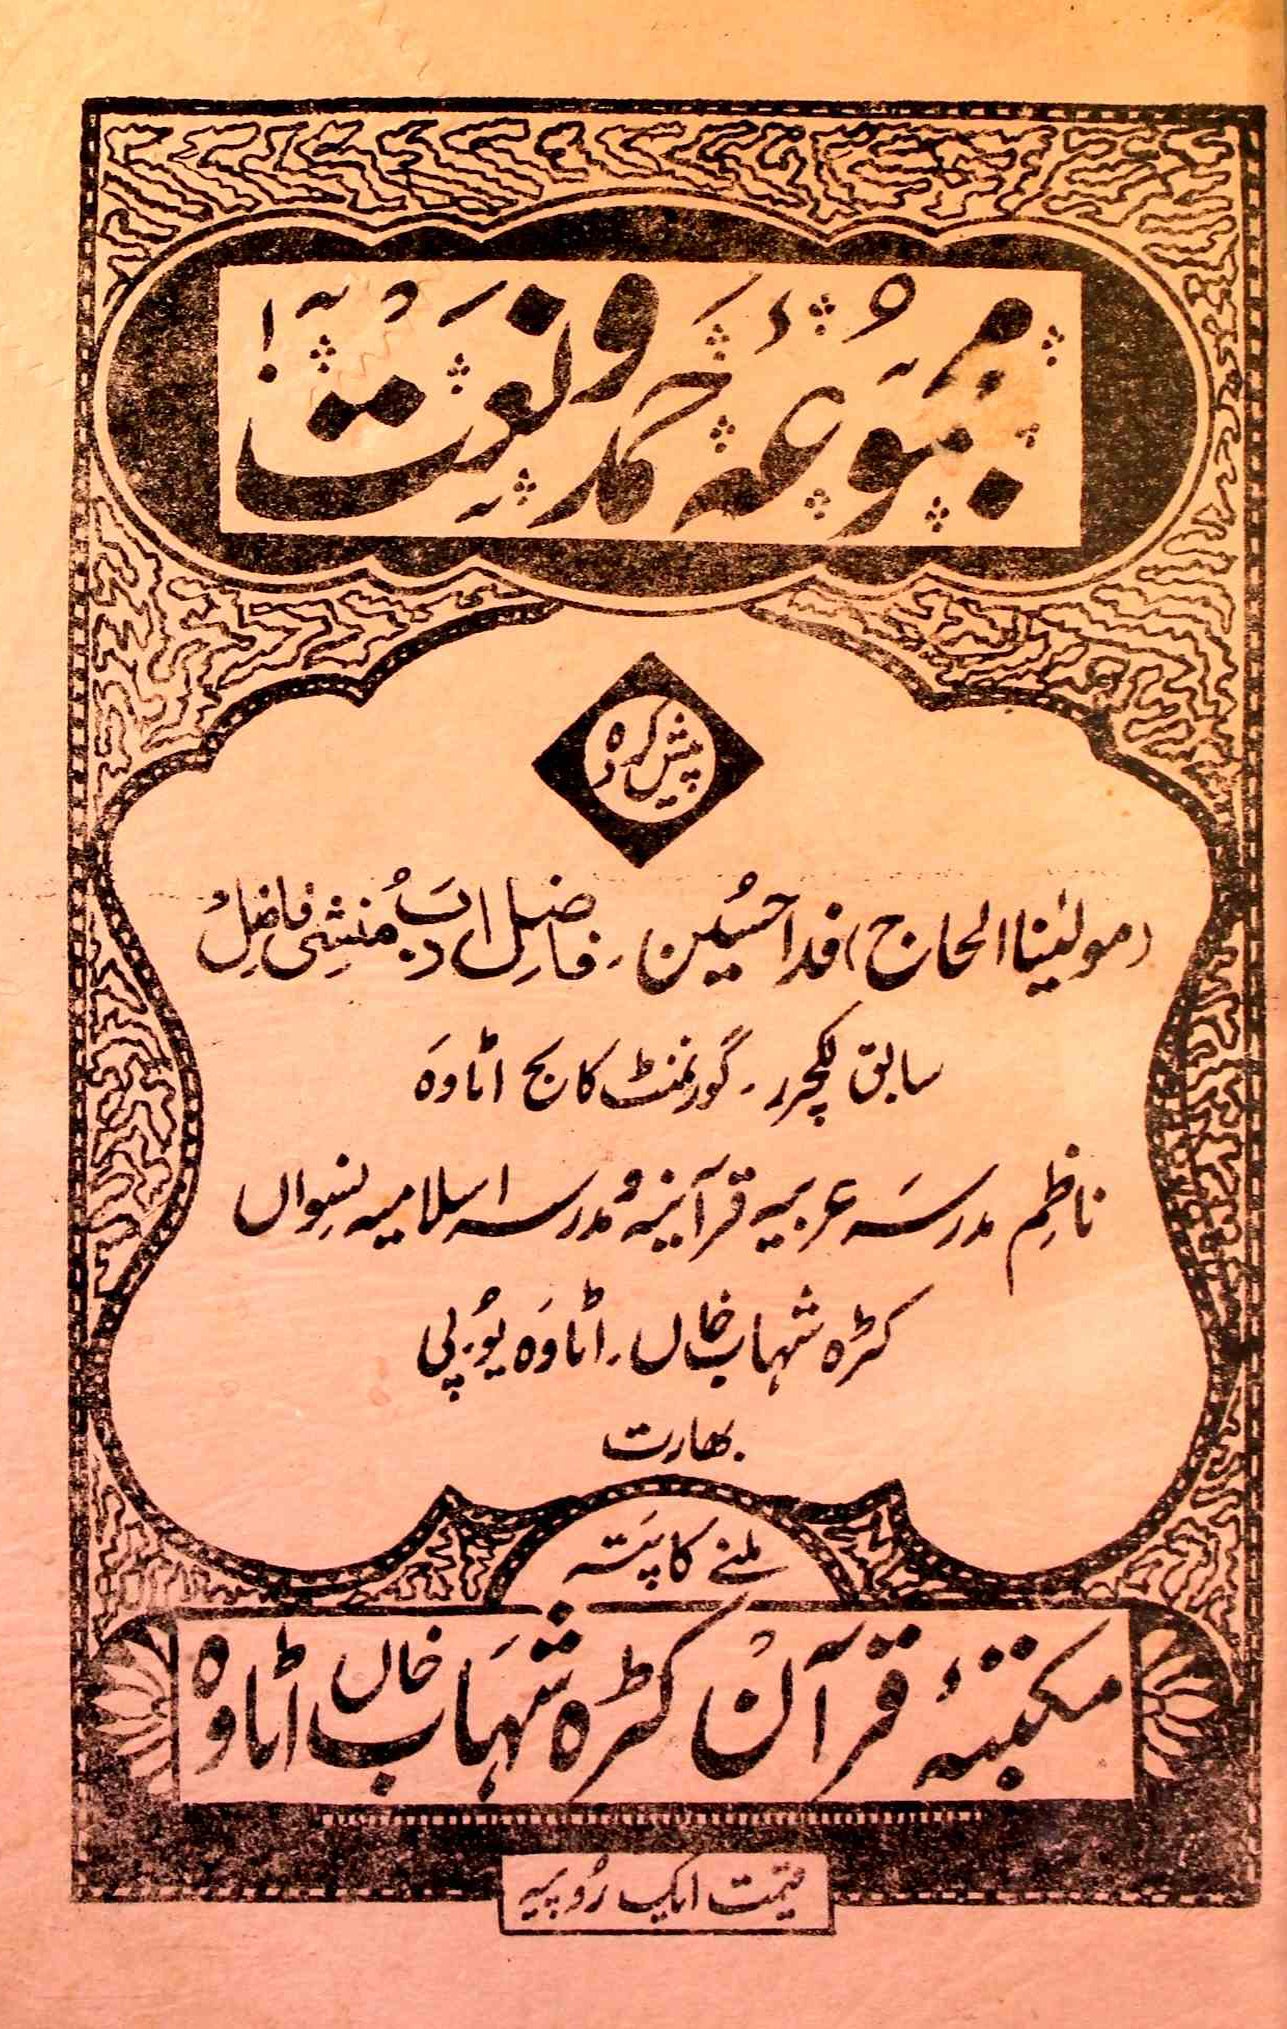 مجموعۂ حمد و نعت
پیش کردہ
(مولینا الحاج) فدا حسین۔ فاضل ادب، منشی فاضل
سابق لکچرر۔ گورنمنٹ کالج اٹاوہ
ناظم مدرسہ عربیہ قرآنیہ و مدرسہ اسلامیہ نسواں
کٹرہ شہاب خاں۔ اٹاوہ یو۔پی
بھارت
ملنے کا پتہ
مکتبۂ قرآن کٹرہ شہاب خاں اٹاوہ
قیمت ایک روپیہ